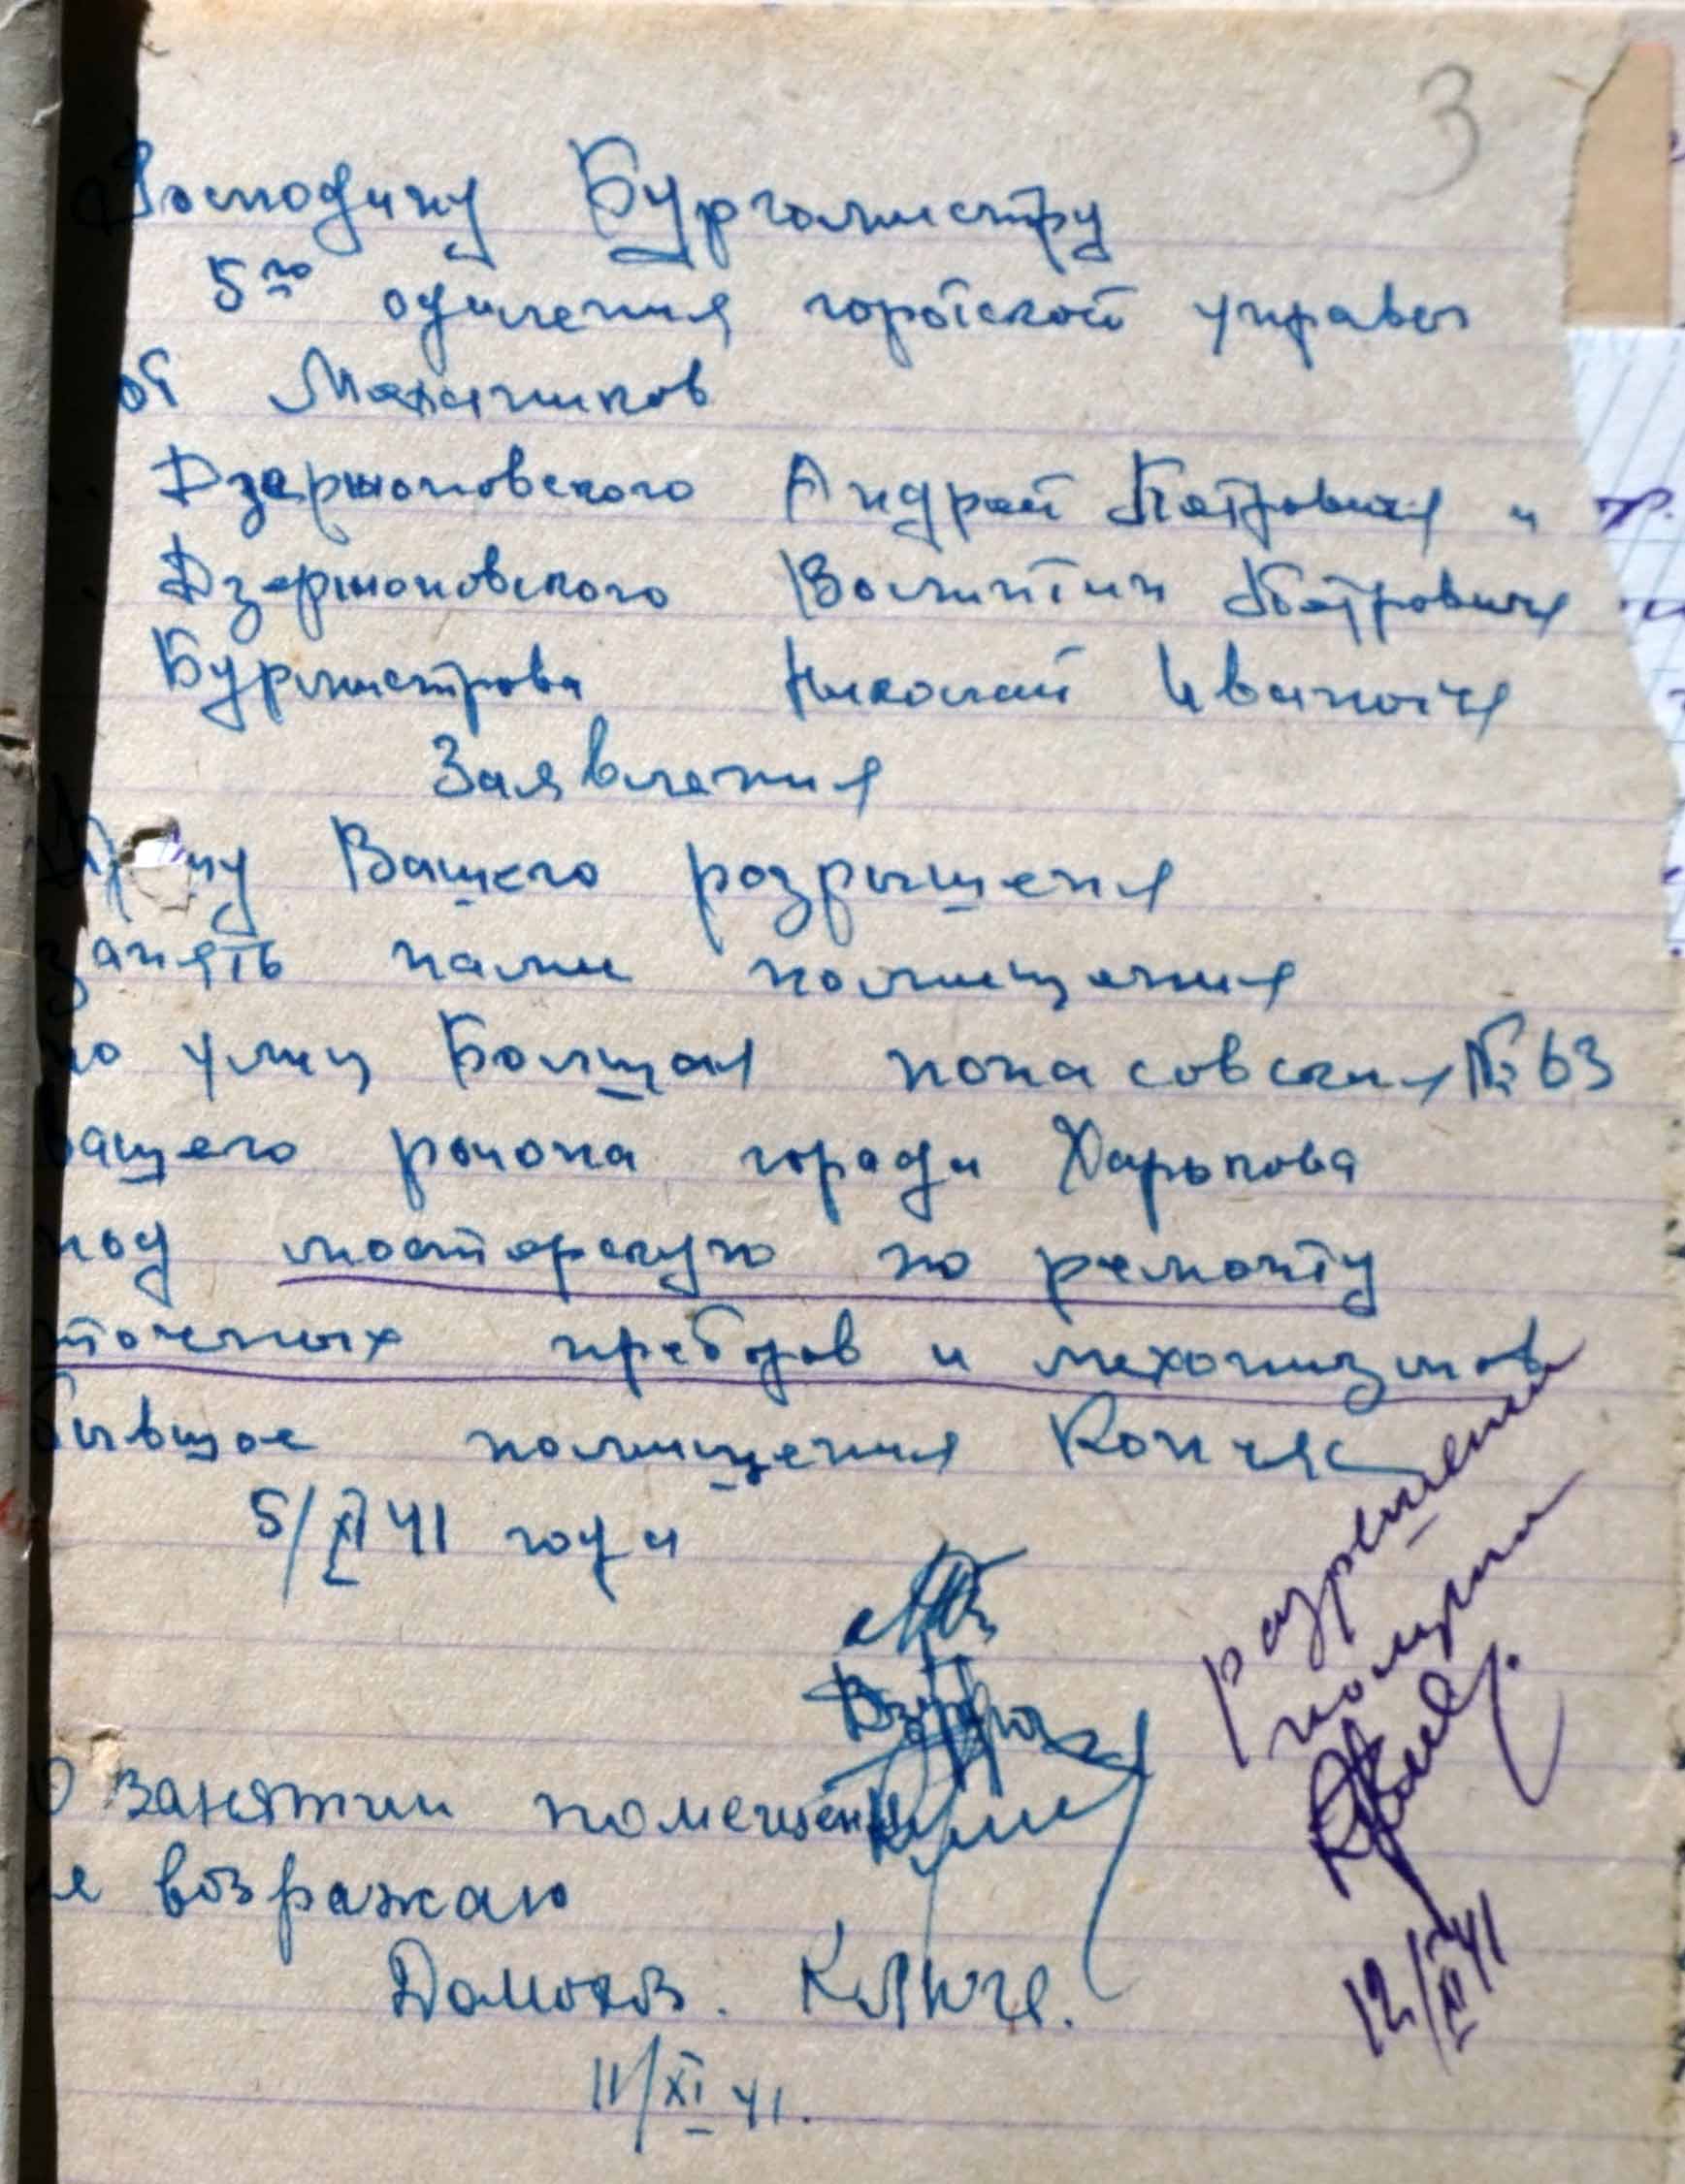 3
Господину Бургомистру
5го одиления горотской управы
от Механиков
Дзержановского Андрей Петровичя и
Дзержановского Валинтин Петровичя
Бурмистрова Николай Иванотчя
Заявления
Вашего розрышеня
занять нами помищения
по улиц Болшая понасовская № 63
вашего района города Харькова
под мостерскую по ремонту
точных прeборов и механизмов
бывшое помищения
5/XI 41 года
О занятии помещения
не возражаю
Домохоз.
11/XI 41.
разрешении
полиции
12/XI 41